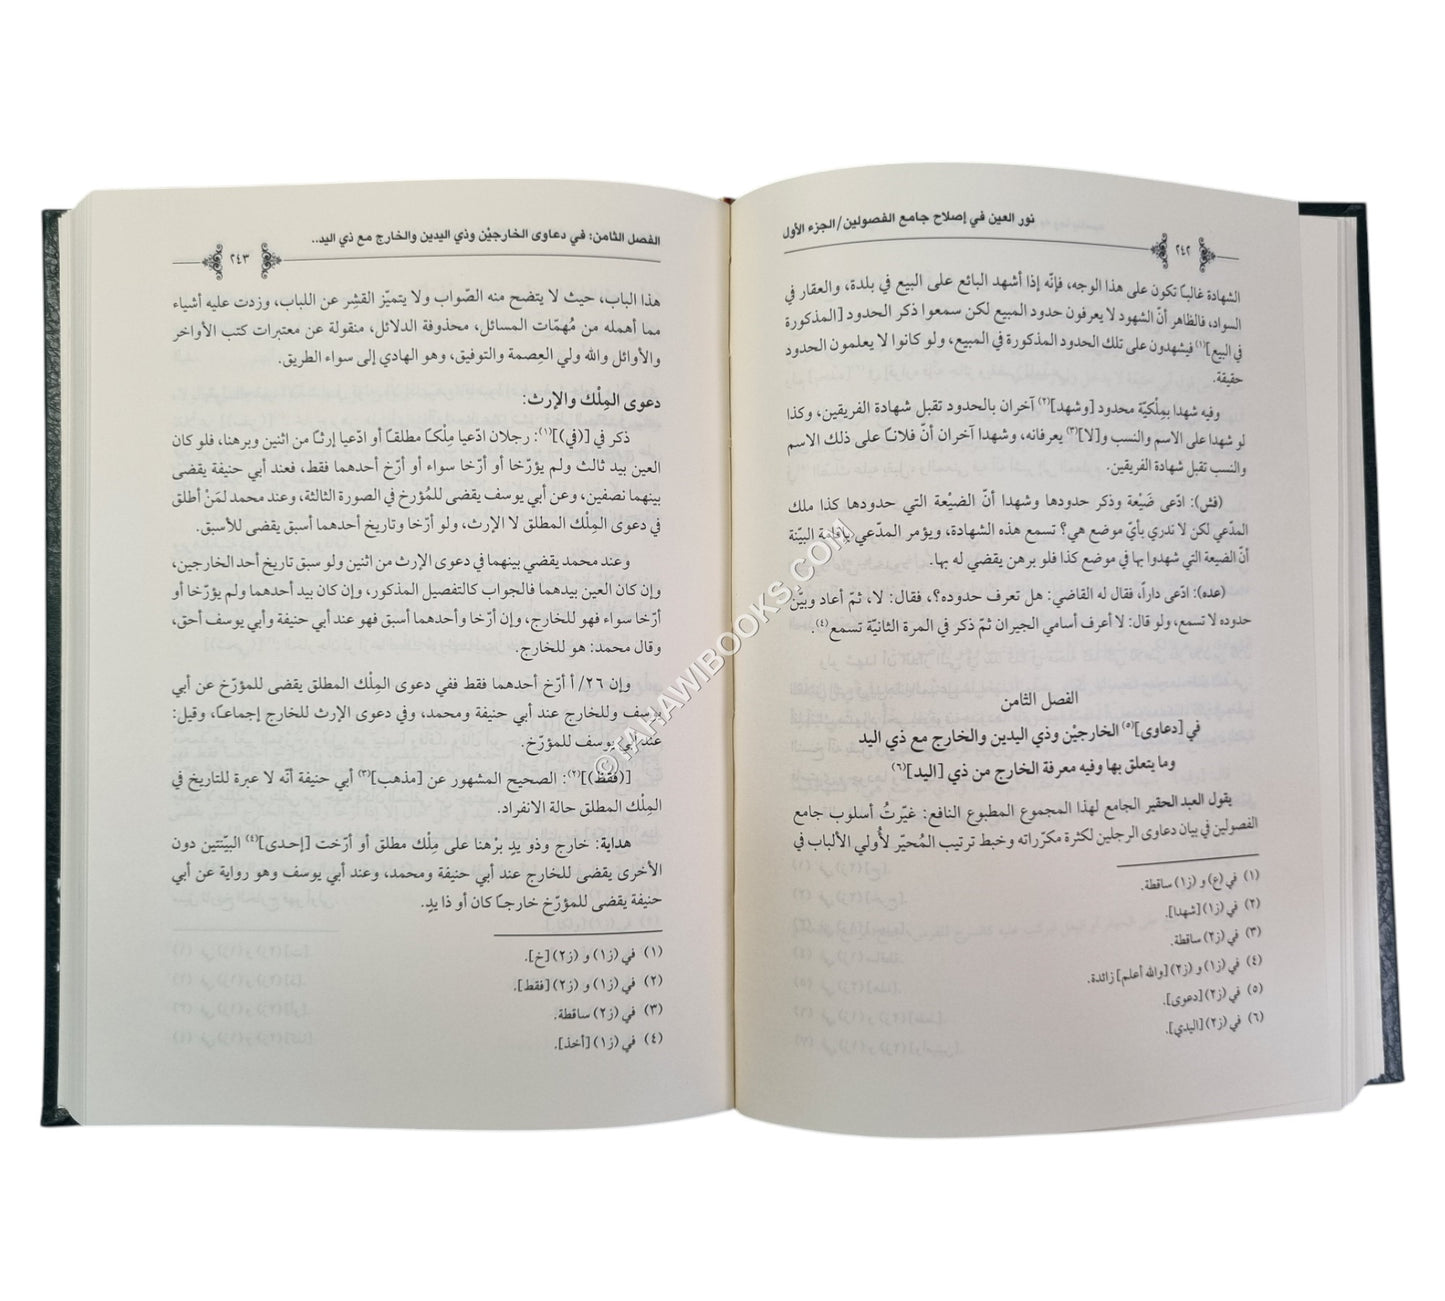 نور العين في إصلاح جامع الفصولين/الجزء الأول
٢٤٢
الشهادة غالبًا تكون على هذا الوجه، فإنّه إذا أشهد البائع على البيع في بلدة، والعقار في
السواد، فالظاهر أنّ الشهود لا يعرفون حدود المبيع لكن سمعوا ذكر الحدود [المذكورة
في البيع](١) فيشهدون على تلك الحدود المذكورة في المبيع، ولو كانوا لا يعلمون الحدود
حقيقة.
وفيه شهدا بمِلْكيّة محدود [وشهد](٢) آخران بالحدود تقبل شهادة الفريقين، وكذا
لو شهدا على الاسم والنسب و[لا](٣) يعرفانه، وشهدا آخران أنّ فلانًا على ذلك الاسم
والنسب تقبل شهادة الفريقين.
(فش): ادّعى ضَيْعة وذكر حدودها وشهدا أنّ الضيْعة التي حدودها كذا ملك
المدّعي لكن لا ندري بأيّ موضع هي؟ تسمع هذه الشهادة، ويؤمر المدّعي بإقامة البيّنة
أنّ الضيعة التي شهدوا بها في موضع كذا فلو برهن يقضي له بها.
(عده): ادّعى داراً، فقال له القاضي: هل تعرف حدوده؟، فقال: لا، ثمّ أعاد وبيّن
حدوده لا تسمع، ولو قال: لا أعرف أسامي الجيران ثمّ ذكر في المرة الثانيّة تسمع(٤).
الفصل الثامن
في [دعاوى](٥) الخارجيْن وذي اليدين والخارج مع ذي اليد
وما يتعلق بها وفيه معرفة الخارج من ذي [اليد](٦)
يقول العبد الحقير الجامع لهذا المجموع المطبوع النافع: غيّرتُ أسلوب جامع
الفصولين في بيان دعاوى الرجلين لكثرة مكرّراته وخبط ترتيب المُحيّر لأُولي الألباب في
(١) في (ع) و (ز١) ساقطة.
(٢) في (ز١) [شهدا].
(٣) في (ز٢) ساقطة.
(٤) في (ز١) و (ز٢) [والله أعلم] زائدة.
(٥) في (ز٢) [دعوى].
(٦) في (ز٢) [اليدي].
الفصل الثامن: في دعاوى الخارجيْن وذي اليدين والخارج مع ذي اليد..
٢٤٣
هذا الباب، حيث لا يتضح منه الصّواب ولا يتميّز القشِر عن اللباب، وزدت عليه أشياء
مما أهمله من مُهمّات المسائل، محذوفة الدلائل، منقولة عن معتبرات كتب الأواخر
والأوائل والله ولي العِصمة والتوفيق، وهو الهادي إلى سواء الطريق.
دعوى المِلْك والإرث:
ذكر في [(في)](١): رجلان ادّعيا مِلْكًا مطلقًا أو ادّعيا إرثًا من اثنين وبرهنا، فلو كان
العين بيد ثالث ولم يؤرّخا أو أرّخا سواء أو أرّخ أحدهما فقط، فعند أبي حنيفة يقضى
بينهما نصفين، وعن أبي يوسف يقضى للمُؤرخ في الصورة الثالثة، وعند محمد لمَنْ أطلق
في دعوى المِلْك المطلق لا الإرث، ولو أرّخا وتاريخ أحدهما أسبق يقضى للأسبق.
وعند محمد يقضي بينهما في دعوى الإرث من اثنين ولو سبق تاريخ أحد الخارجين،
وإن كان العين بيدهما فالجواب كالتفصيل المذكور، وإن كان بيد أحدهما ولم يؤرّخا أو
أرّخا سواء فهو للخارج، وإن أرّخا وأحدهما أسبق فهو عند أبي حنيفة وأبي يوسف أحق،
وقال محمد: هو للخارج.
وإن ٢٦/ أ أرّخ أحدهما فقط ففي دعوى المِلْك المطلق يقضى للمؤرّخ عن أبي
يوسف وللخارج عند أبي حنيفة ومحمد، وفي دعوى الإرث للخارج إجماعًا، وقيل:
عند أبي يوسف للمؤرّخ.
[(فقظ)](٢): الصحيح المشهور عن [مذهب](٣) أبي حنيفة أنّه لا عبرة للتاريخ في
المِلْك المطلق حالة الانفراد.
هداية: خارج وذو يدٍ برْهنا على مِلْك مطلق أو أرّخت [إحدى](٤) البيّنتين دون
الأخرى يقضى للخارج عند أبي حنيفة ومحمد، وعند أبي يوسف وهو رواية عن أبي
حنيفة يقضى للمؤرّخ خارجًا كان أو ذا يدٍ.
(١) في (ز١) و (ز٢) [خ].
(٢) في (ز١) و (ز٢) [فقط].
(٣) في (ز٢) ساقطة.
(٤) في (ز١) [أخذ].
©TAHAWIBOOKS.COM